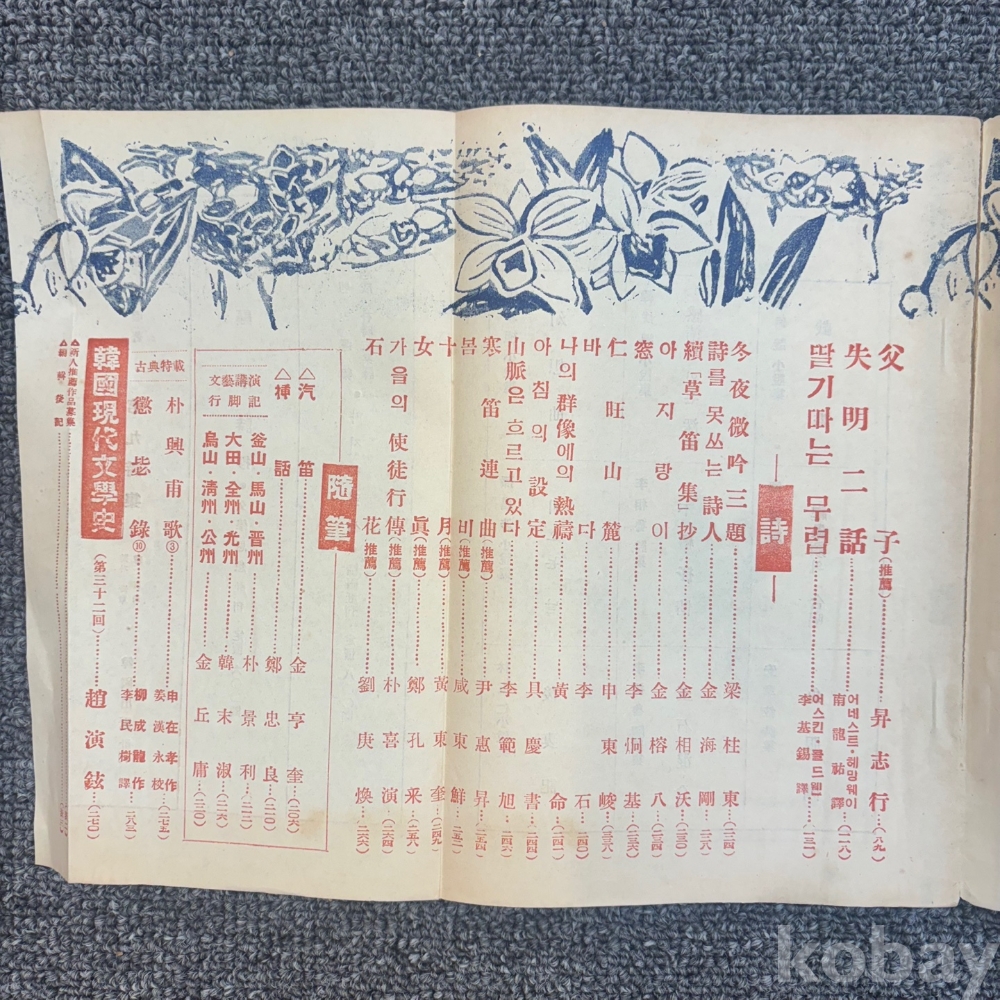 父子(推薦)……昇志行…(八九)
失明二話……어네스트·헤밍웨이 南龍祐譯…(一一八)
딸기따는 무렵……어스킨·콜드웰 李基錫譯…(一三一)
詩
冬夜微吟三題……梁柱東…(二三四)
詩를 못쓰는 詩人……金海剛…
續「草笛集」抄……金相沃…
아지랑이……金榕八…
窓……李烔基…(二三六)
仁旺山麓……申東峻…(二三八)
바다……李石…(二四〇)
나의 群像에의 熱禱……黃命…(二四一)
아침의 設定……具慶書…
山脈은 흐르고 있다……李範旭…二四六
寒笛連曲(推薦)……尹惠昇…二五四
봄비(推薦)……咸東鮮…二五二
十月(推薦)……黃東奎…(二四九)
女眞(推薦)……鄭孔釆…(二五八)
가을의 使徒行傳(推薦)……朴喜演…(二六四)
石花(推薦)……劉庚煥…(二六六)
隨筆
△汽笛……金亨奎…(二〇六)
△揷話……鄭忠良…(二一〇)
文藝講演行脚記
釜山·馬山·晋州……朴景利…(二一三)
大田·全州·光州……韓末淑…(二一六)
烏山·淸州·公州……金丘庸…(二二〇)
古典特載
朴興甫歌③……申在孝作 姜漢永校…(二七五)
懲毖錄⑩……柳成龍作 李民樹譯…(二八三)
韓國現代文學史(第三十二回)……趙演鉉…(二七〇)
△新人推薦作品募集
△編輯後記
kobay